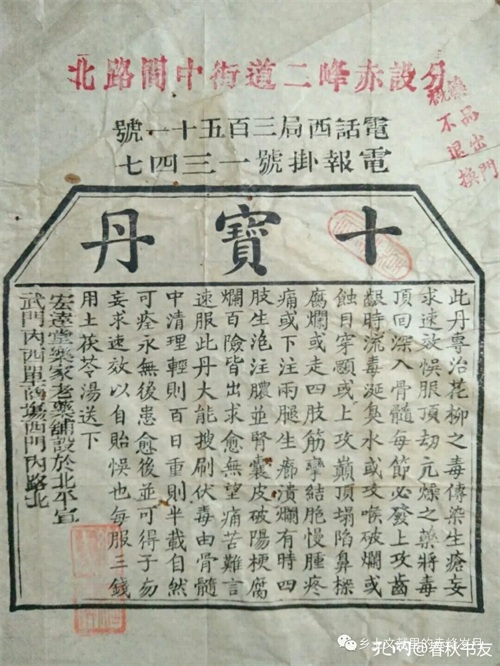 分設赤峰二道街中間路北
電話西局三百五十一號
電報掛號一三四七
藥品出門
不退換
十寶丹
此丹專治花柳之毒傳染生瘡妄
求速效悞服頂刧元燥之藥將毒
頂回深入骨髓每節必發上攻齒
齦時流毒涎臭水或攻喉破爛或
蝕目穿顋或上攻巔頂塌陷鼻樑
腐爛或走四肢筋孿結胞慢腫疼
痛或下注兩腿生癤潰爛有時四
肢生泡注膿並腎囊皮破陽梗腐
爛百險皆出求愈無望痛苦難言
速服此丹大能搜刷伏毒由骨髓
中清理輕則百日重則半載自然
可痊永無後患愈後並可得子勿
妄求速效以自貽悞也每服三錢
用土茯苓湯送下
宏達堂樂家老藥舖設於北平宣
武門內西單商場西門內路北
乡土文献里的赤峰岁月
孔网@春秋书友